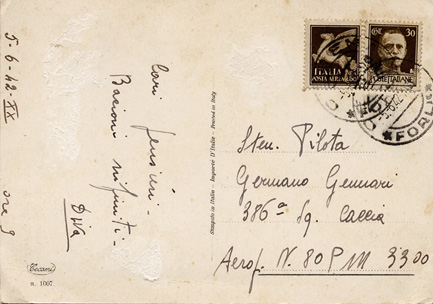 5-6-42-XX
ore 9
Cari pensieri -
Bacioni infiniti -
Diva
Cecami
n. 1007
Stampato in Italia - Imprimé D'Italie - Printed in Italy
ITALIA
POSTA AEREA
CENT. 30
POSTE ITALIANE
FORLI
Sten. Pilota
Germano Gennari
386ª Sq. Caccia
Aerop. N. 80 P M 3300